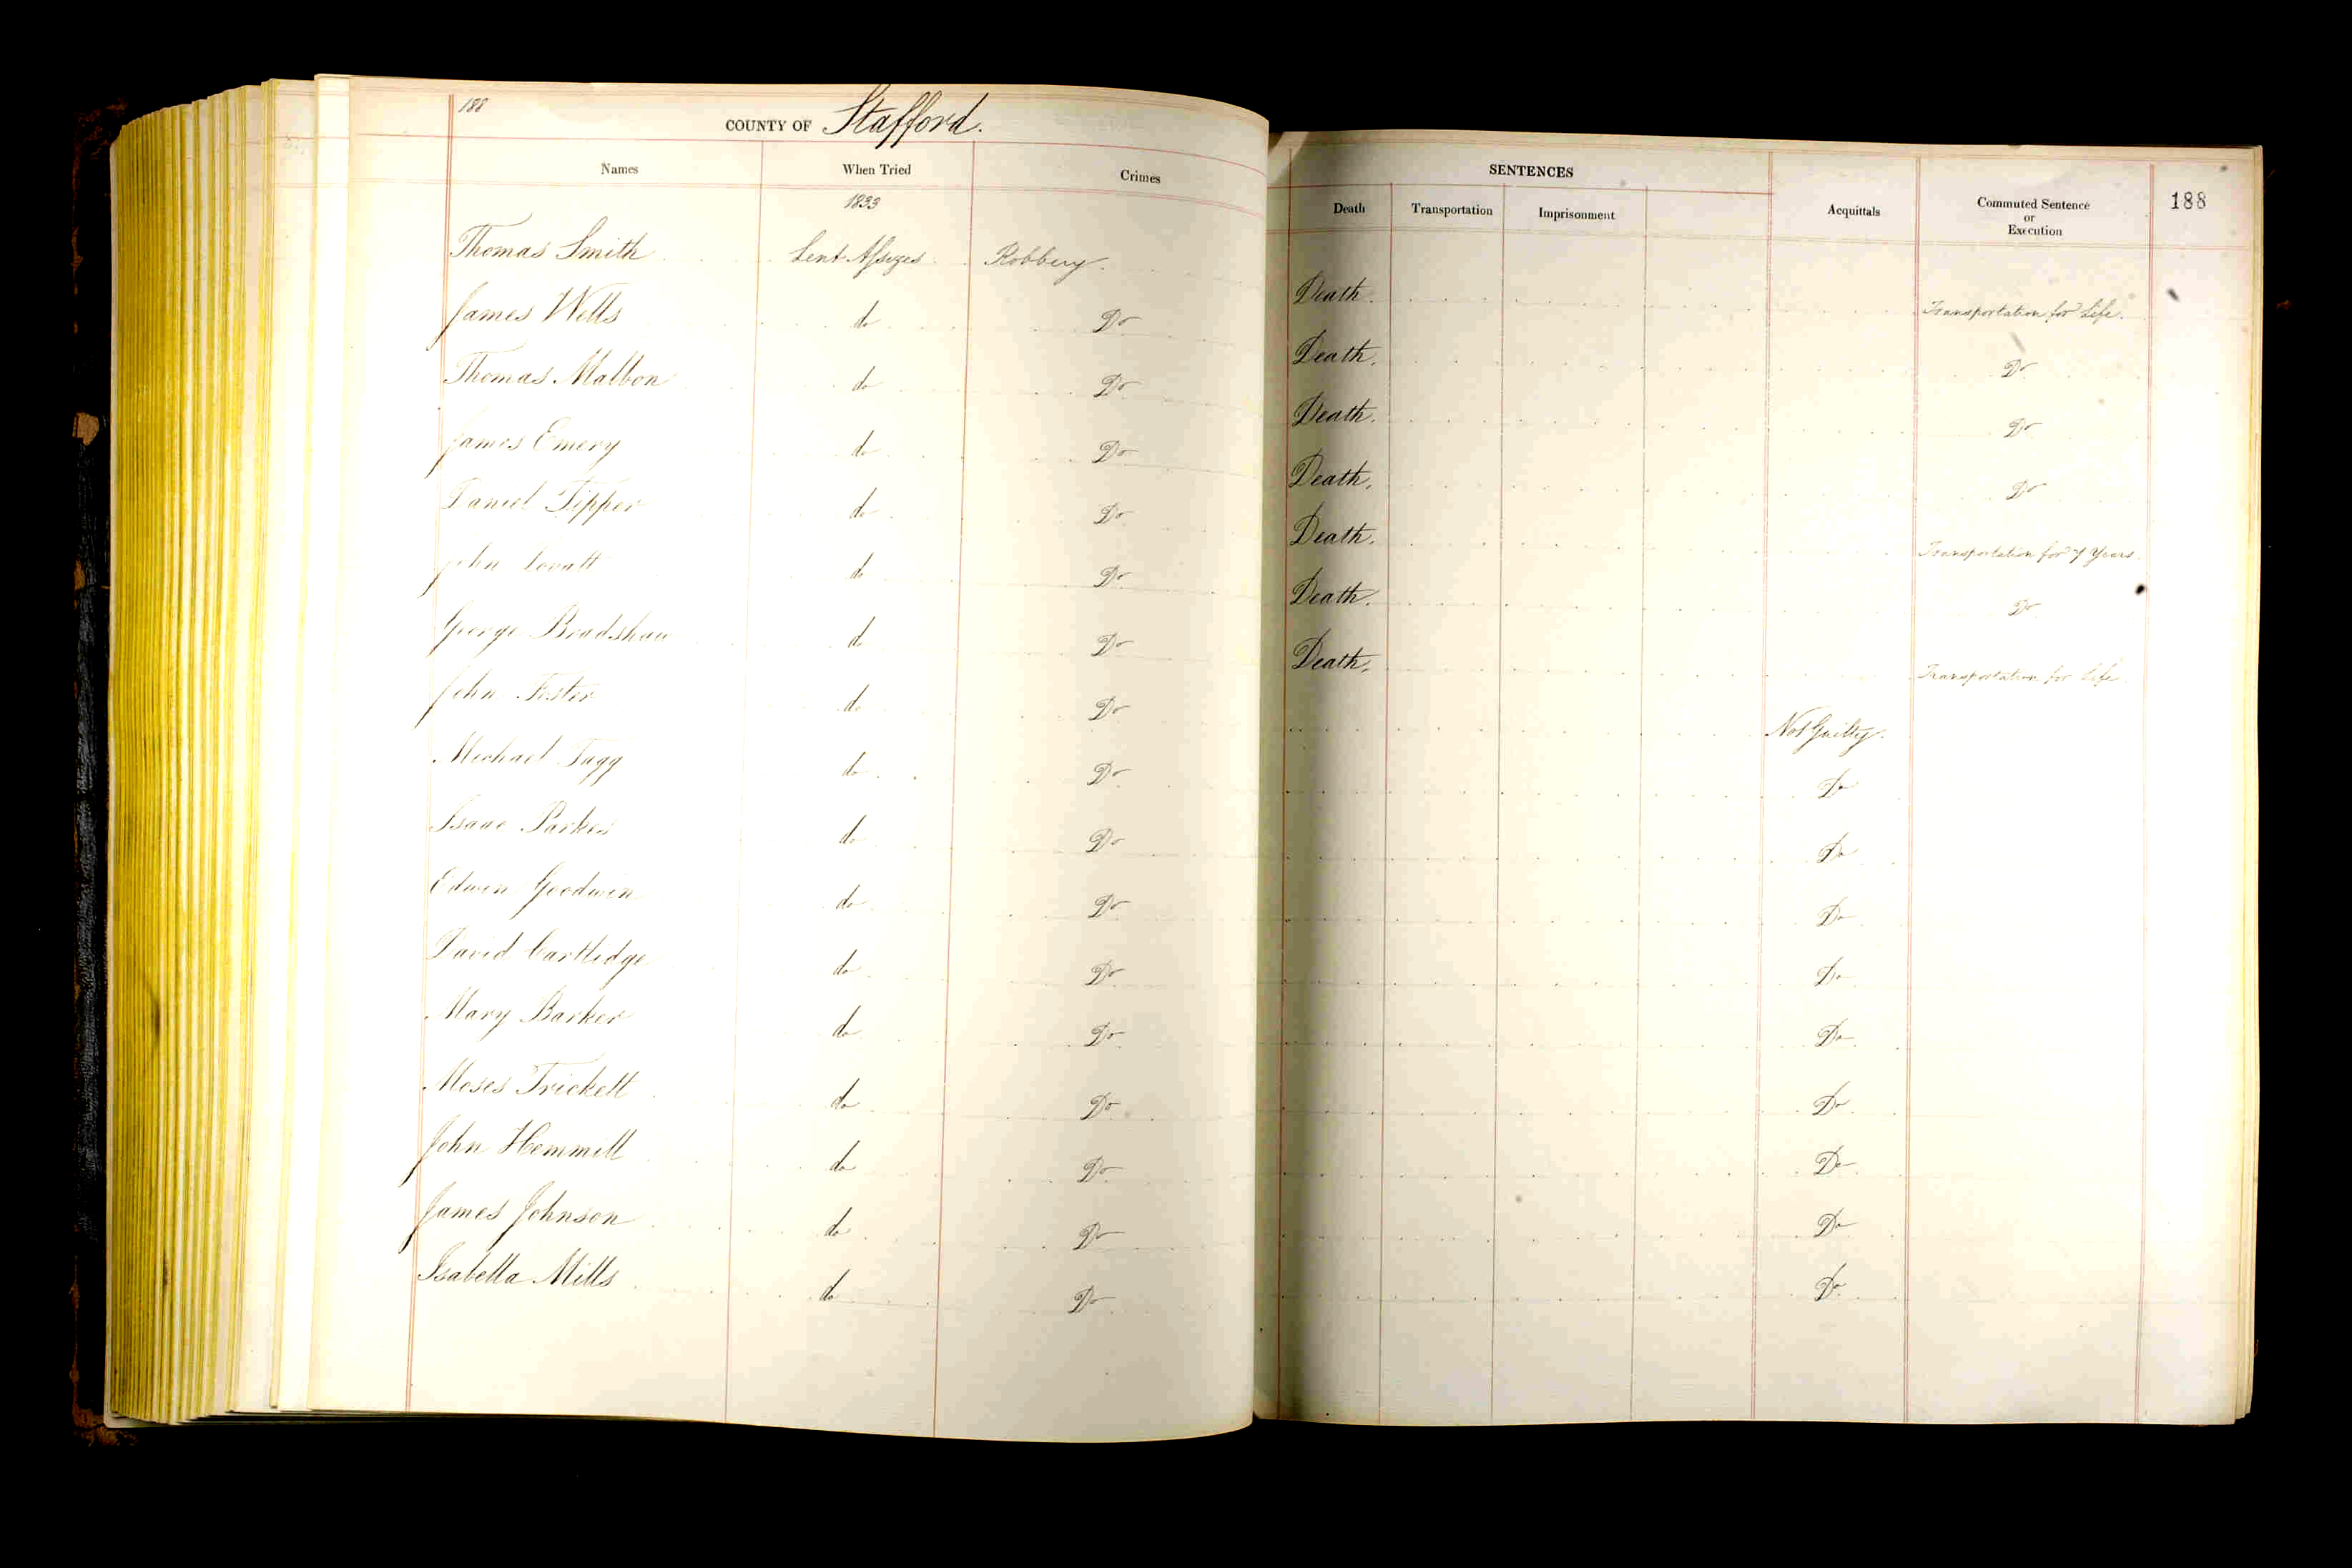 188
COUNTY OF Stafford.
Names When Tried Crimes
1833
SENTENCES
Death Transportation Imprisonment Acquittals Commuted Sentence or Execution 188
Thomas Smith Lent Assizes Robbery. Death. Transportation for Life.
James Wells do Do Death. Do
Thomas Malbon do Do Death. Do
James Emery do Do Death. Do
Daniel Tipper do Do Death. Transportation for 7 Years.
John Lovatt do Do Death. Do
George Bradshaw do Do Death. Transportation for Life.
John Foster do Do Not Guilty.
Michael Tagg do Do Do
Isaac Parkes do Do Do
Edwin Goodwin do Do Do
David Cartlidge do Do Do
Mary Barker do Do Do
Moses Trickett do Do Do
John Hemmill do Do Do
James Johnson do Do Do
Isabella Mills do Do Do